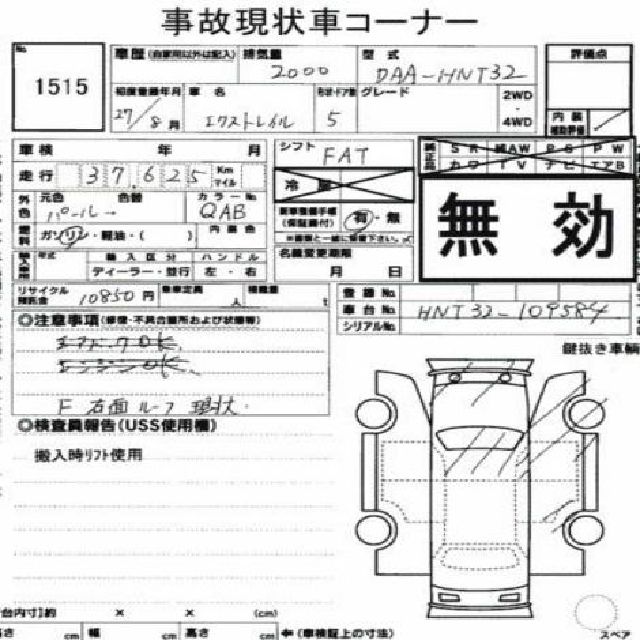 事故現状車コーナー
No. 1515
車歴(自家用以外は記入) 排気量 2000 型式 DAA-HNT32 評価点
初度登録年月 27/8月 車名 エクストレイル ドア数 5 グレード 2WD・4WD 内装補助評価
車検 年 月 シフト FAT 純正品 SR AW PS PW
走行 37,625 Km マイル 冷 カワ TV ナビ エアB
外色 元色 パール 色替 カラーNo. QAB (有)・無 無効
燃料 ガソリン・軽油・( ) 内装色 ※書類と一緒に保管下さい。
輸入車用 年式 輸入区分 ハンドル 名義変更期限
ディーラー・並行 左・右 月 日
リサイクル預託金 10850円 乗車定員 人 積載量 登録No.
車台No. HNT32-109584
シリアルNo.
◎注意事項(修復・不具合箇所および状態等)
エアバックOK
エンジンOK
F 右面 ルーフ 現状.
鍵抜き車輌
◎検査員報告(USS使用欄)
搬入時リフト使用
台内寸)約 × × (cm)
高さ cm 幅 cm 高さ cm ←(車検証上の寸法) スペア